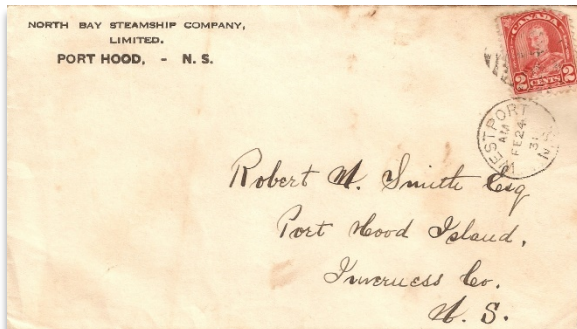 NORTH BAY STEAMSHIP COMPANY,
LIMITED.
PORT HOOD, - N. S.
CANADA
2 CENTS 2
WESTPORT
AM
FE 24
31
N.S.
Robert N. Smith Esq
Port Hood Island,
Inverness Co.
N. S.